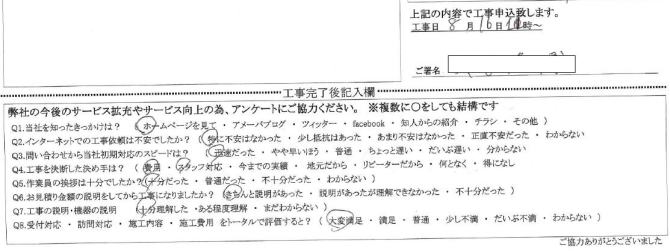 上記の内容で工事申込致します。
工事日 8月16日 時～
ご署名
工事完了後記入欄
弊社の今後のサービス拡充やサービス向上の為、アンケートにご協力ください。 ※複数に○をしても結構です
Q1.当社を知ったきっかけは？（ホームページを見て ・ アメーバブログ ・ ツィッター ・ facebook ・ 知人からの紹介 ・ チラシ ・ その他 ）
Q2.インターネットでの工事依頼は不安でしたか？（特に不安はなかった ・ 少し抵抗はあった ・ あまり不安はなかった ・ 正直不安だった ・ わからない
Q3.問い合わせから当社初期対応のスピードは？（迅速だった ・ やや早いほう ・ 普通 ・ ちょっと遅い ・ だいぶ遅い ・ 分からない
Q4.工事を決断した決め手は？（費用 ・ スタッフ対応 ・ 今までの実績 ・ 地元だから ・ リピーターだから ・ 何となく ・ 得になし
Q5.作業員の挨拶は十分でしたか？（十分だった ・ 普通だった ・ 不十分だった ・ わからない ）
Q6.お見積り金額の説明をしてから工事になりましたか？（きちんと説明があった ・ 説明があったが理解できなかった ・ 不十分だった ）
Q7.工事の説明・機器の説明 （十分理解した ・ ある程度理解 ・ まだわからない ）
Q8.受付対応 ・ 訪問対応 ・ 施工内容 ・ 施工費用 をトータルで評価すると？（ 大変満足 ・ 満足 ・ 普通 ・ 少し不満 ・ だいぶ不満 ・ わからない ）
ご協力ありがとうございました